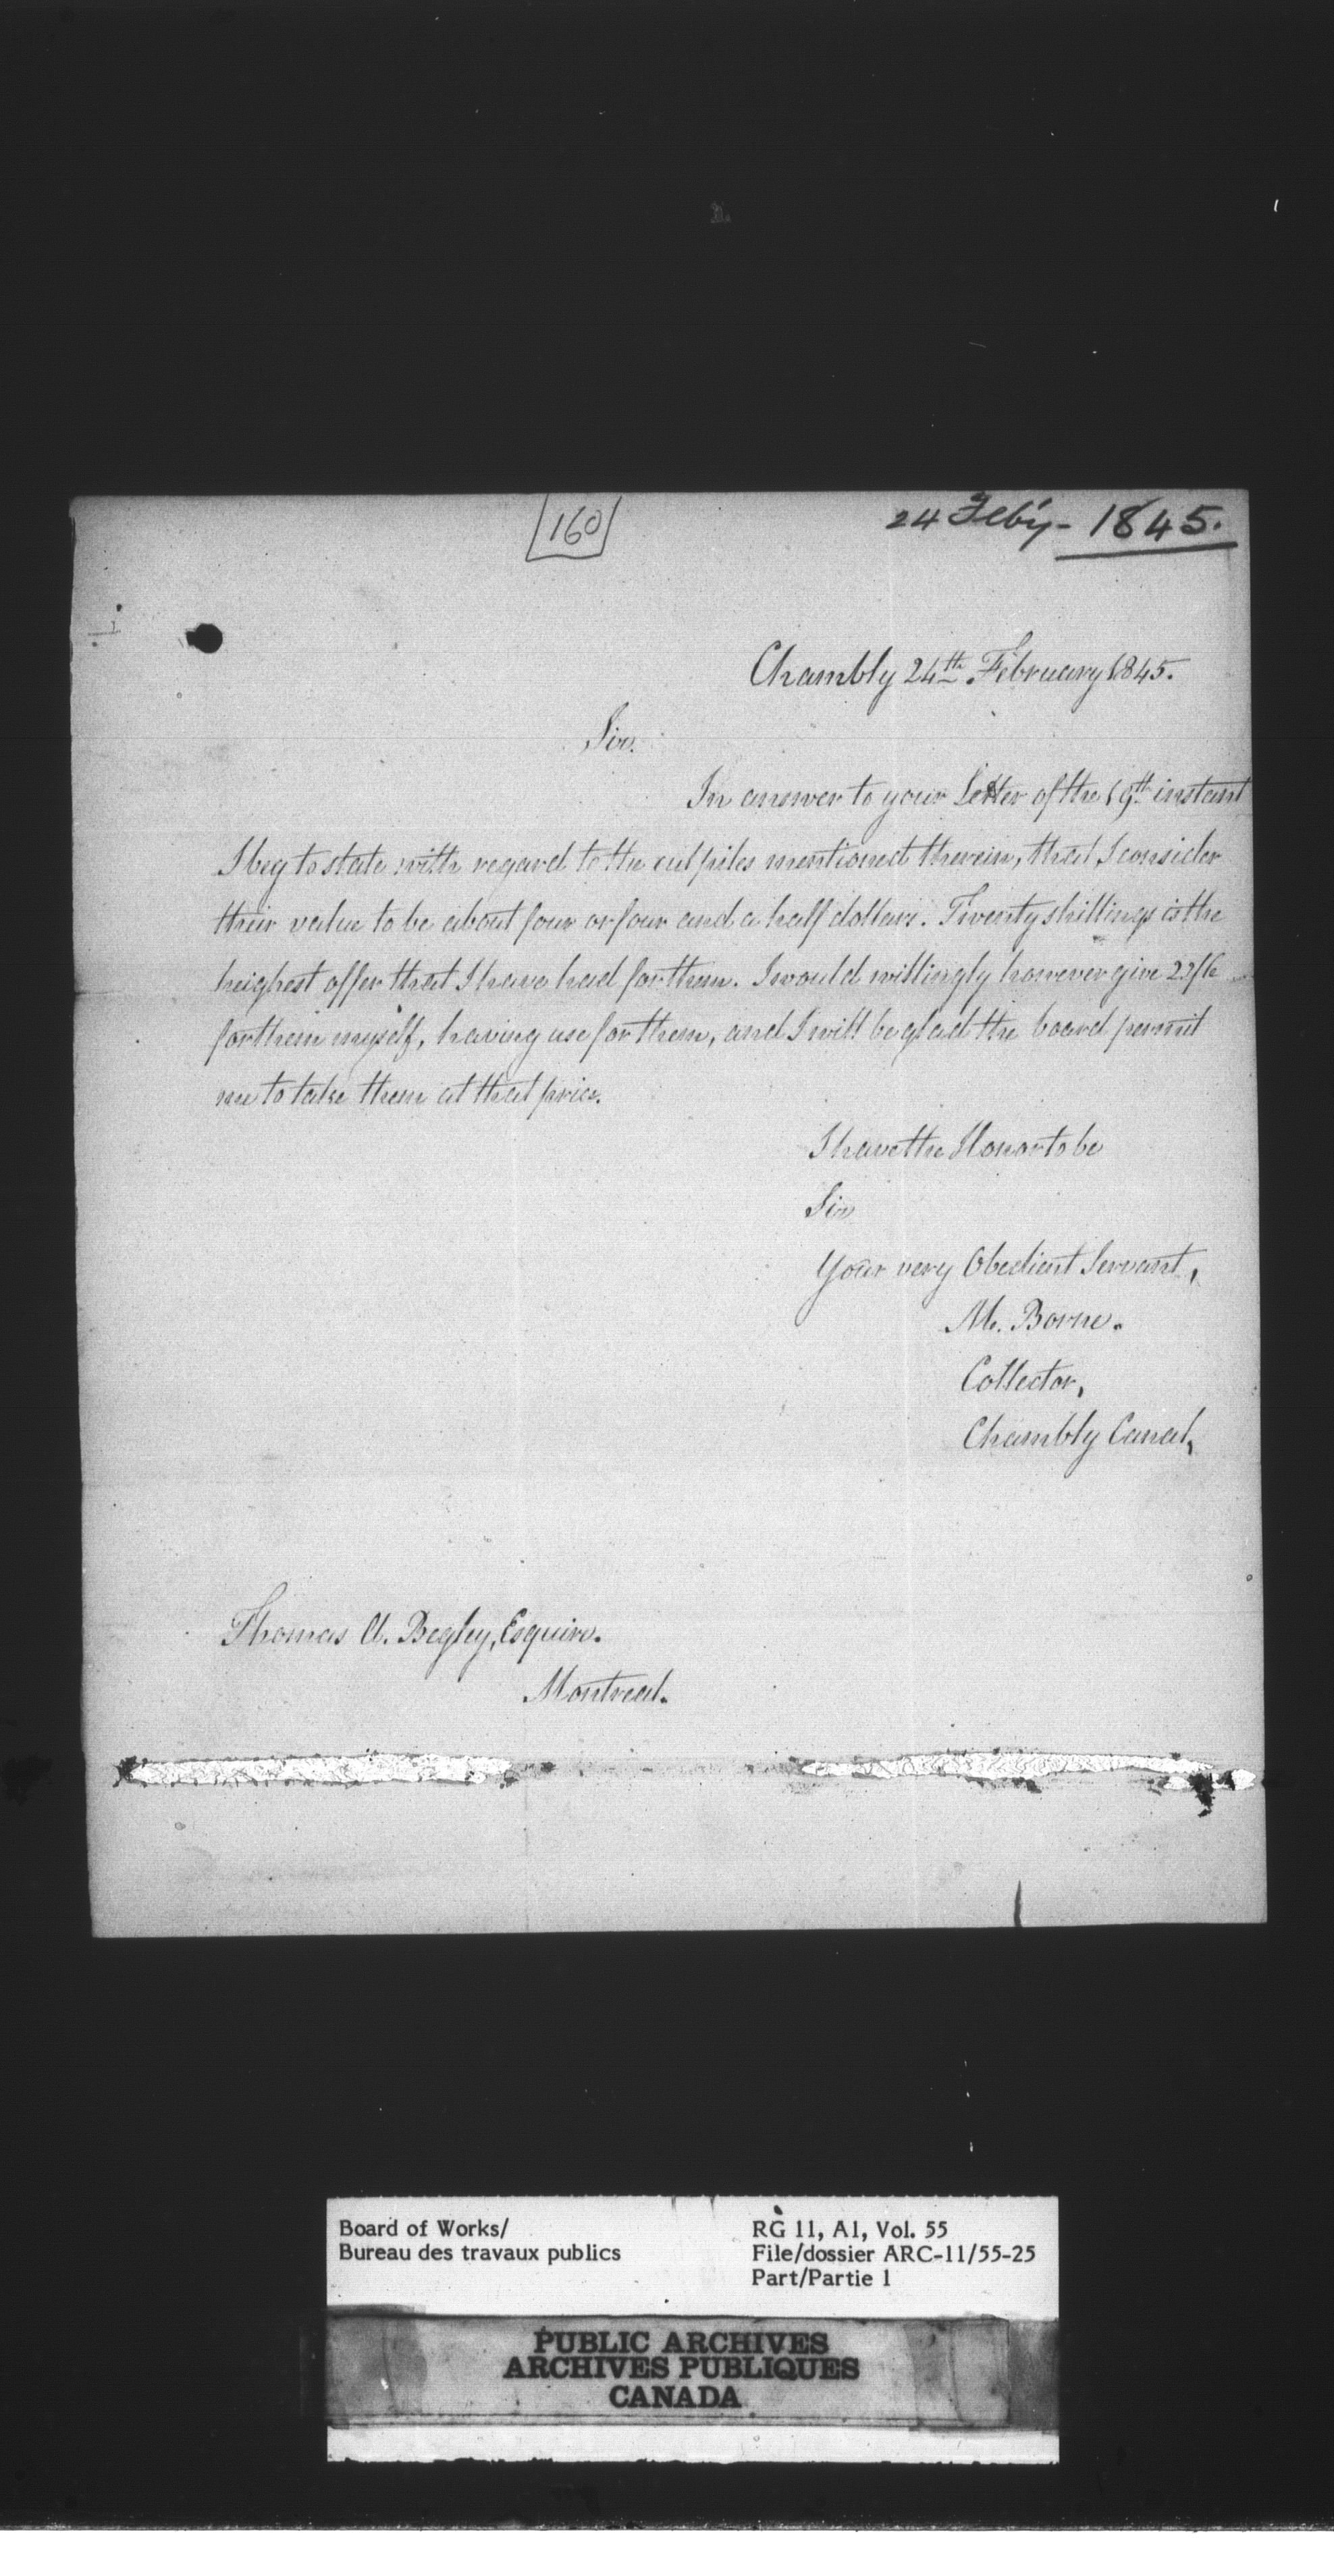 160
24 Feb'y - 1845.
Chambly 24th February 1845.
Sir.
In answer to your Letter of the 19th instant
I beg to state with regard to the cut piles mentioned therein, that I consider
their value to be about four or four and a half dollars. Twenty shillings is the
heighest offer that I have had for them. I would willingly however give 22/6
for them myself, having use for them, and I will be glad the board permit
me to take them at that price.
I have the Honor to be
Sir
Your very Obedient Servant,
M. Borne.
Collector,
Chambly Canal,
Thomas A. Begley, Esquire.
Montreal.
Board of Works/
Bureau des travaux publics
RG 11, A1, Vol. 55
File/dossier ARC-11/55-25
Part/Partie 1
PUBLIC ARCHIVES
ARCHIVES PUBLIQUES
CANADA